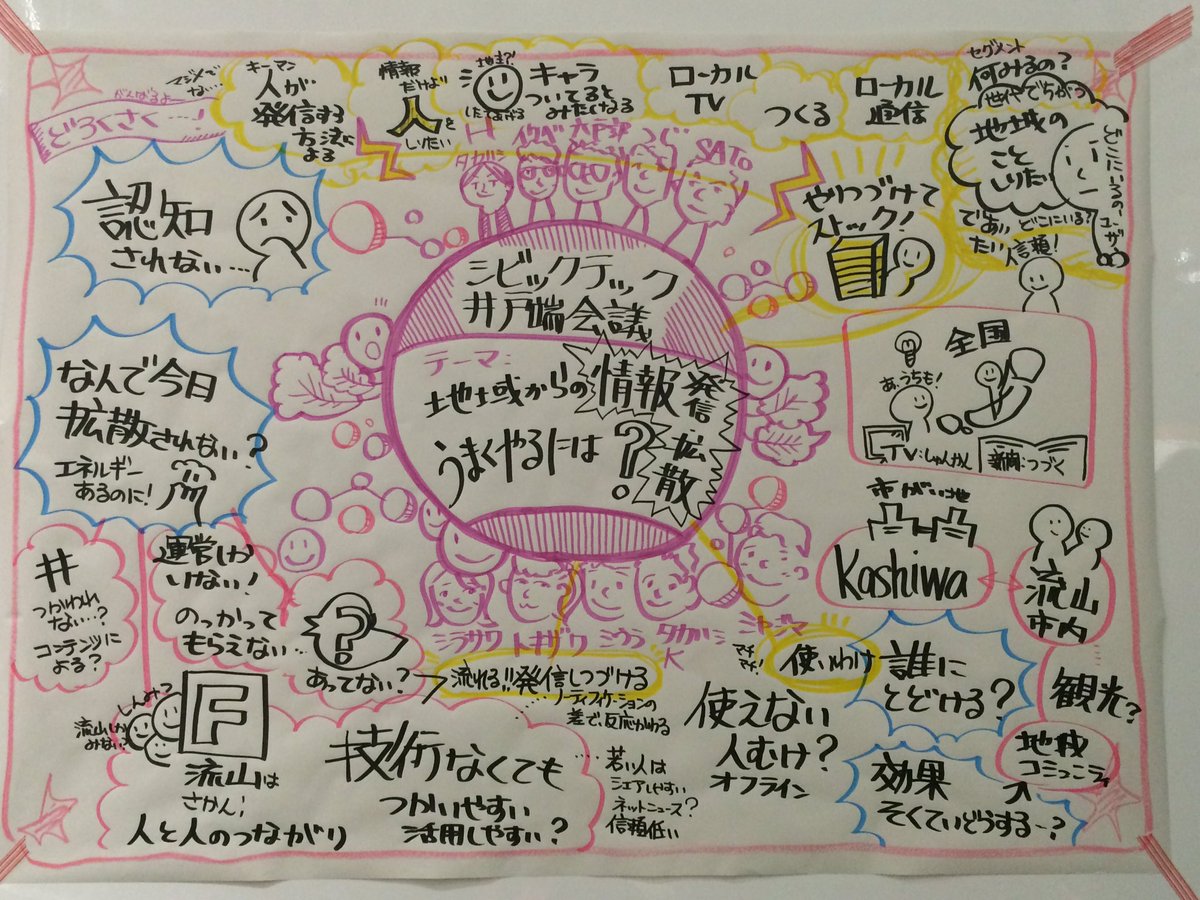 がんばるよー
どろくさく…!
マジメで
ない…
キーマン
人が
発信する
方法に
よる
情報
だけより
人を
しりたい
地まつ?!
キャラ
ついてると
みたくなる
したてあげる
ローカル
TV
つくる
ローカル
通信
セグメント
何みるの?
世代でちがう
地域の
こと
しりたい
どこにいるのーユーザー
であい
たい
どこにいる?
信頼!
やりつづけて
ストック!
認知
されない…
タカハシ
SATO
シビックテック
井戸端会議
テーマ:
地域からの情報発信・拡散
うまくやるには?
なんで今日
拡散されない?
エネルギー
あるのに!
全国
あ、うちも!
TV:しゅんかん
新聞:つづく
市がい地
Kashiwa
流山
市内
#
つかわれ
ない…?
コンテンツに
よる?
運営しか
いない!
のっかって
もらえない…
?
あってない?
ミラサワ
トキザワ
ミウラ
タカハシ
K
流れる!!発信しつづける
…ノーティフィケーションの
差で反応かわる
マチマチ!
使いわけ
誰に
とどける?
観光?
地域
コミュニティ
効果
そくていどうする~?
しんみつ?
流山しか
みない?
F
流山は
さかん;
人と人のつながり
技術なくても
つかいやすい
活用しやすい?
…若い人は
シェアしやすい
ネットニュース?
信頼低い
使えない
人むけ?
オフライン